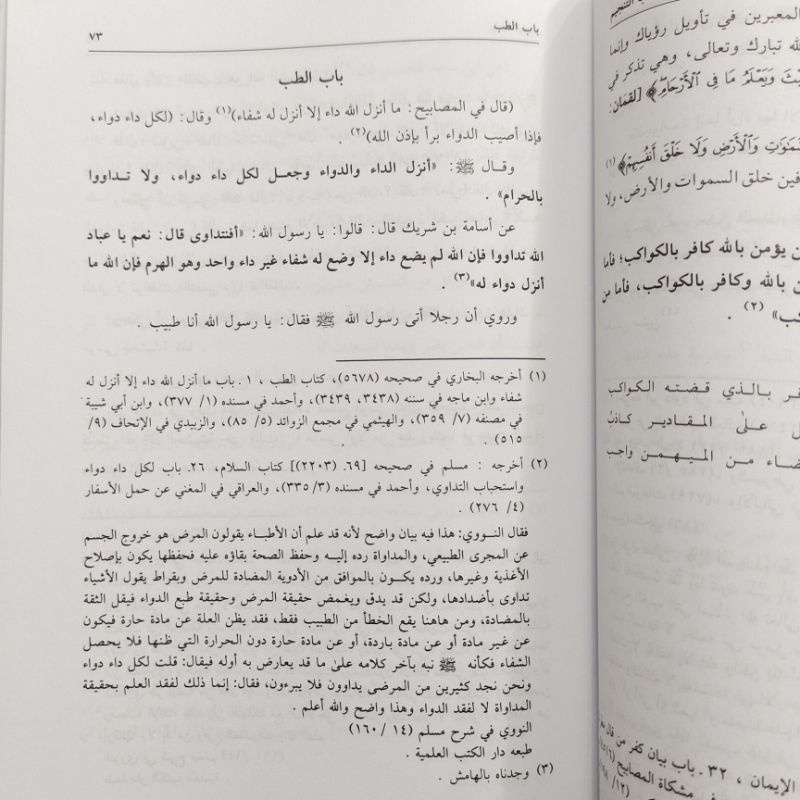 باب الطب
٧٣
باب الطب
(قال في المصابيح: ما أنزل الله داء إلا أنزل له شفاء)(١) وقال: (لكل داء دواء،
فإذا أصيب الدواء برأ بإذن الله)(٢) .
وقال ﷺ: «أنزل الداء والدواء وجعل لكل داء دواء، ولا تداووا
بالحرام» .
عن أسامة بن شريك قال: قالوا: يا رسول الله: «أفنتداوى قال: نعم يا عباد
الله تداووا فإن الله لم يضع داء إلا وضع له شفاء غير داء واحد وهو الهرم فإن الله ما
أنزل دواء له»(٣) .
وروي أن رجلا أتى رسول الله ﷺ فقال: يا رسول الله أنا طبيب .
(١) أخرجه البخاري في صحيحه (٥٦٧٨)، كتاب الطب ، ١ . باب ما أنزل الله داء إلا أنزل له
شفاء وابن ماجه في سننه (٣٤٣٨، ٣٤٣٩)، وأحمد في مسنده (١/ ٣٧٧)، وابن أبي شيبة
في مصنفه (٧/ ٣٥٩)، والهيثمي في مجمع الزوائد (٥/ ٨٥)، والزبيدي في الإتحاف (٩/
٥١٥) .
(٢) أخرجه : مسلم في صحيحه [٦٩. (٢٢٠٣)] كتاب السلام، ٢٦. باب لكل داء دواء
واستحباب التداوي، وأحمد في مسنده (٣/ ٣٣٥)، والعراقي في المغني عن حمل الأسفار
(٤/ ٢٧٦) .
فقال النووي: هذا فيه بيان واضح لأنه قد علم أن الأطباء يقولون المرض هو خروج الجسم
عن المجرى الطبيعي، والمداواة رده إليه وحفظ الصحة بقاؤه عليه فحفظها يكون بإصلاح
الأغذية وغيرها، ورده يكون بالموافق من الأدوية المضادة للمرض وبقراط يقول الأشياء
تداوى بأضدادها، ولكن قد يدق ويغمض حقيقة المرض وحقيقة طبع الدواء فيقل الثقة
بالمضادة، ومن هاهنا يقع الخطأ من الطبيب فقط، فقد يظن العلة عن مادة حارة فيكون
عن غير مادة أو عن مادة باردة، أو عن مادة حارة دون الحرارة التي ظنها فلا يحصل
الشفاء فكأنه ﷺ نبه بآخر كلامه على ما قد يعارض به أوله فيقال: قلت لكل داء دواء
ونحن نجد كثيرين من المرضى يداوون فلا يبرءون، فقال: إنما ذلك لفقد العلم بحقيقة
المداواة لا لفقد الدواء وهذا واضح والله أعلم .
النووي في شرح مسلم (١٤ / ١٦٠)
طبعه دار الكتب العلمية .
(٣) وجدناه بالهامش .
المعبرين في تأويل رؤياك وإنما
الله تبارك وتعالى، وهي تذكر في
وَيَعْلَمُ مَا فِى ٱلْأَرْحَامِ﴾ [لقمَان:
وَٱلْأَرْضِ وَلَا خَلْقَ أَنفُسِهِمْ﴾(١)
خلق السموات والأرض، ولا
يؤمن بالله كافر بالكواكب؛ فأما
بالله وكافر بالكواكب، فأما من
(٢) .
بالذي قضته الكواكب
على المقادير كاذب
من المهيمن واجب
الإيمان ، ٣٢ . باب بيان كفر من قال
في مشكاة المصابيح